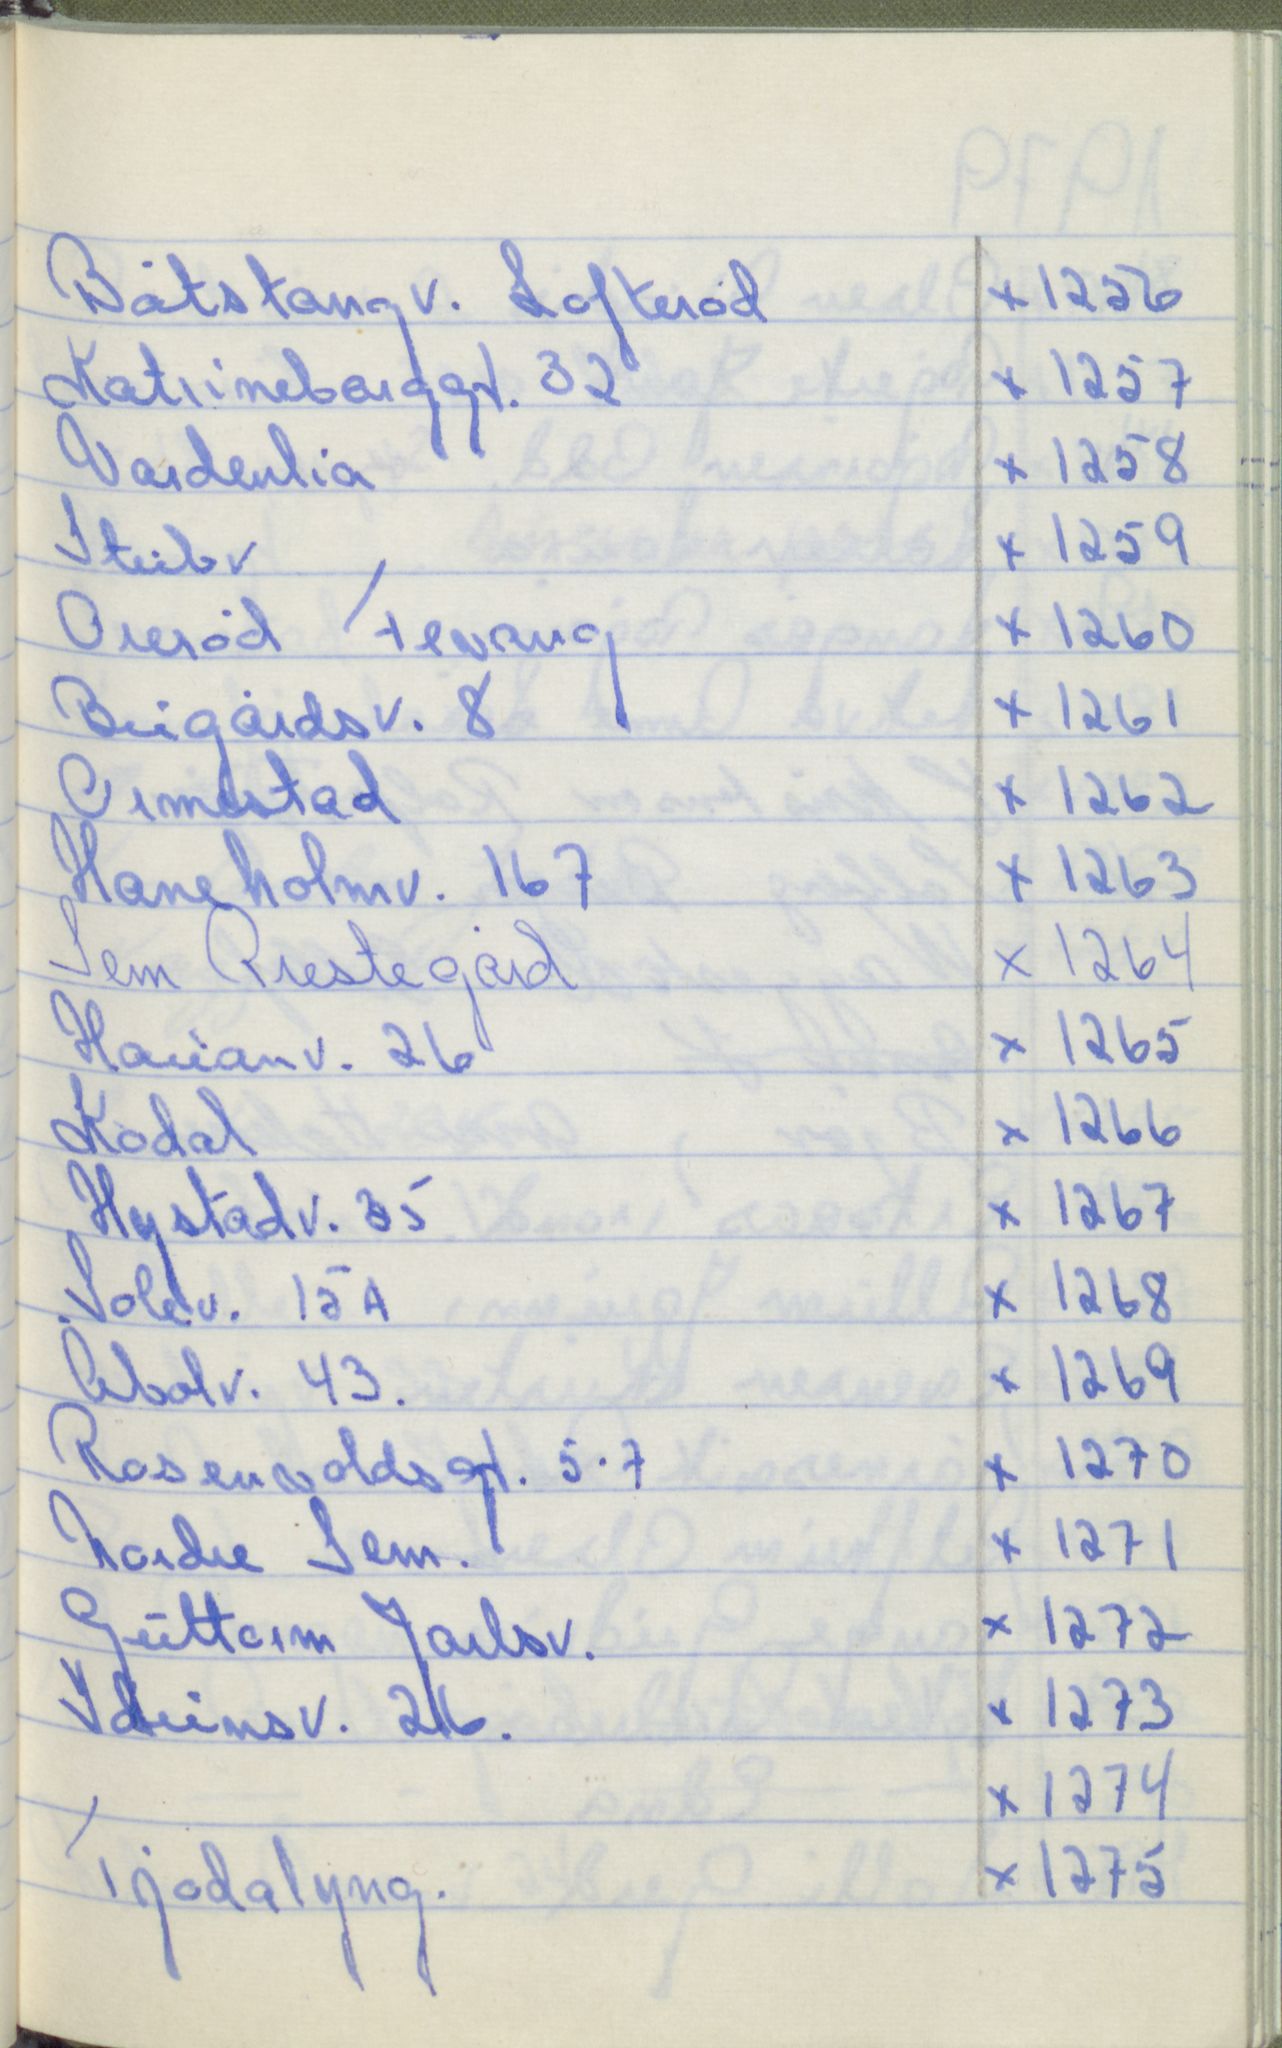 Båtstangv. Lofterød x 1256
Katrineborggt. 32 x 1257
Vardenlia x 1258
Steibv x 1259
Orerød Tevang x 1260
Breigårdsv. 8 x 1261
Ormestad x 1262
Haneholmv. 167 x 1263
Sem Prestegård x 1264
Harianv. 26 x 1265
Kodal x 1266
Hystadv. 35 x 1267
Solev. 15A x 1268
43. x 1269
Rosenvoldsgt. 5-7 x 1270
Nordre Sem. x 1271
Güttorm Jarlsv. x 1272
Idreinsv. 26. x 1273
x 1274
Tjodalyng. x 1275